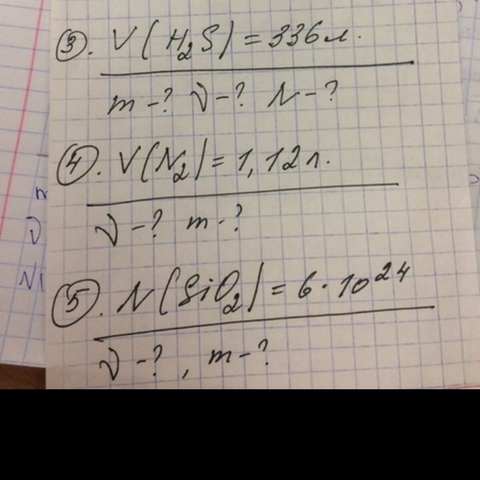 3. V(H₂S) = 336 л.
m-? ν-? N-?
4. V(N₂) = 1,12 л.
ν-? m-?
5. N(SiO₂) = 6·10²⁴
ν-?, m-?